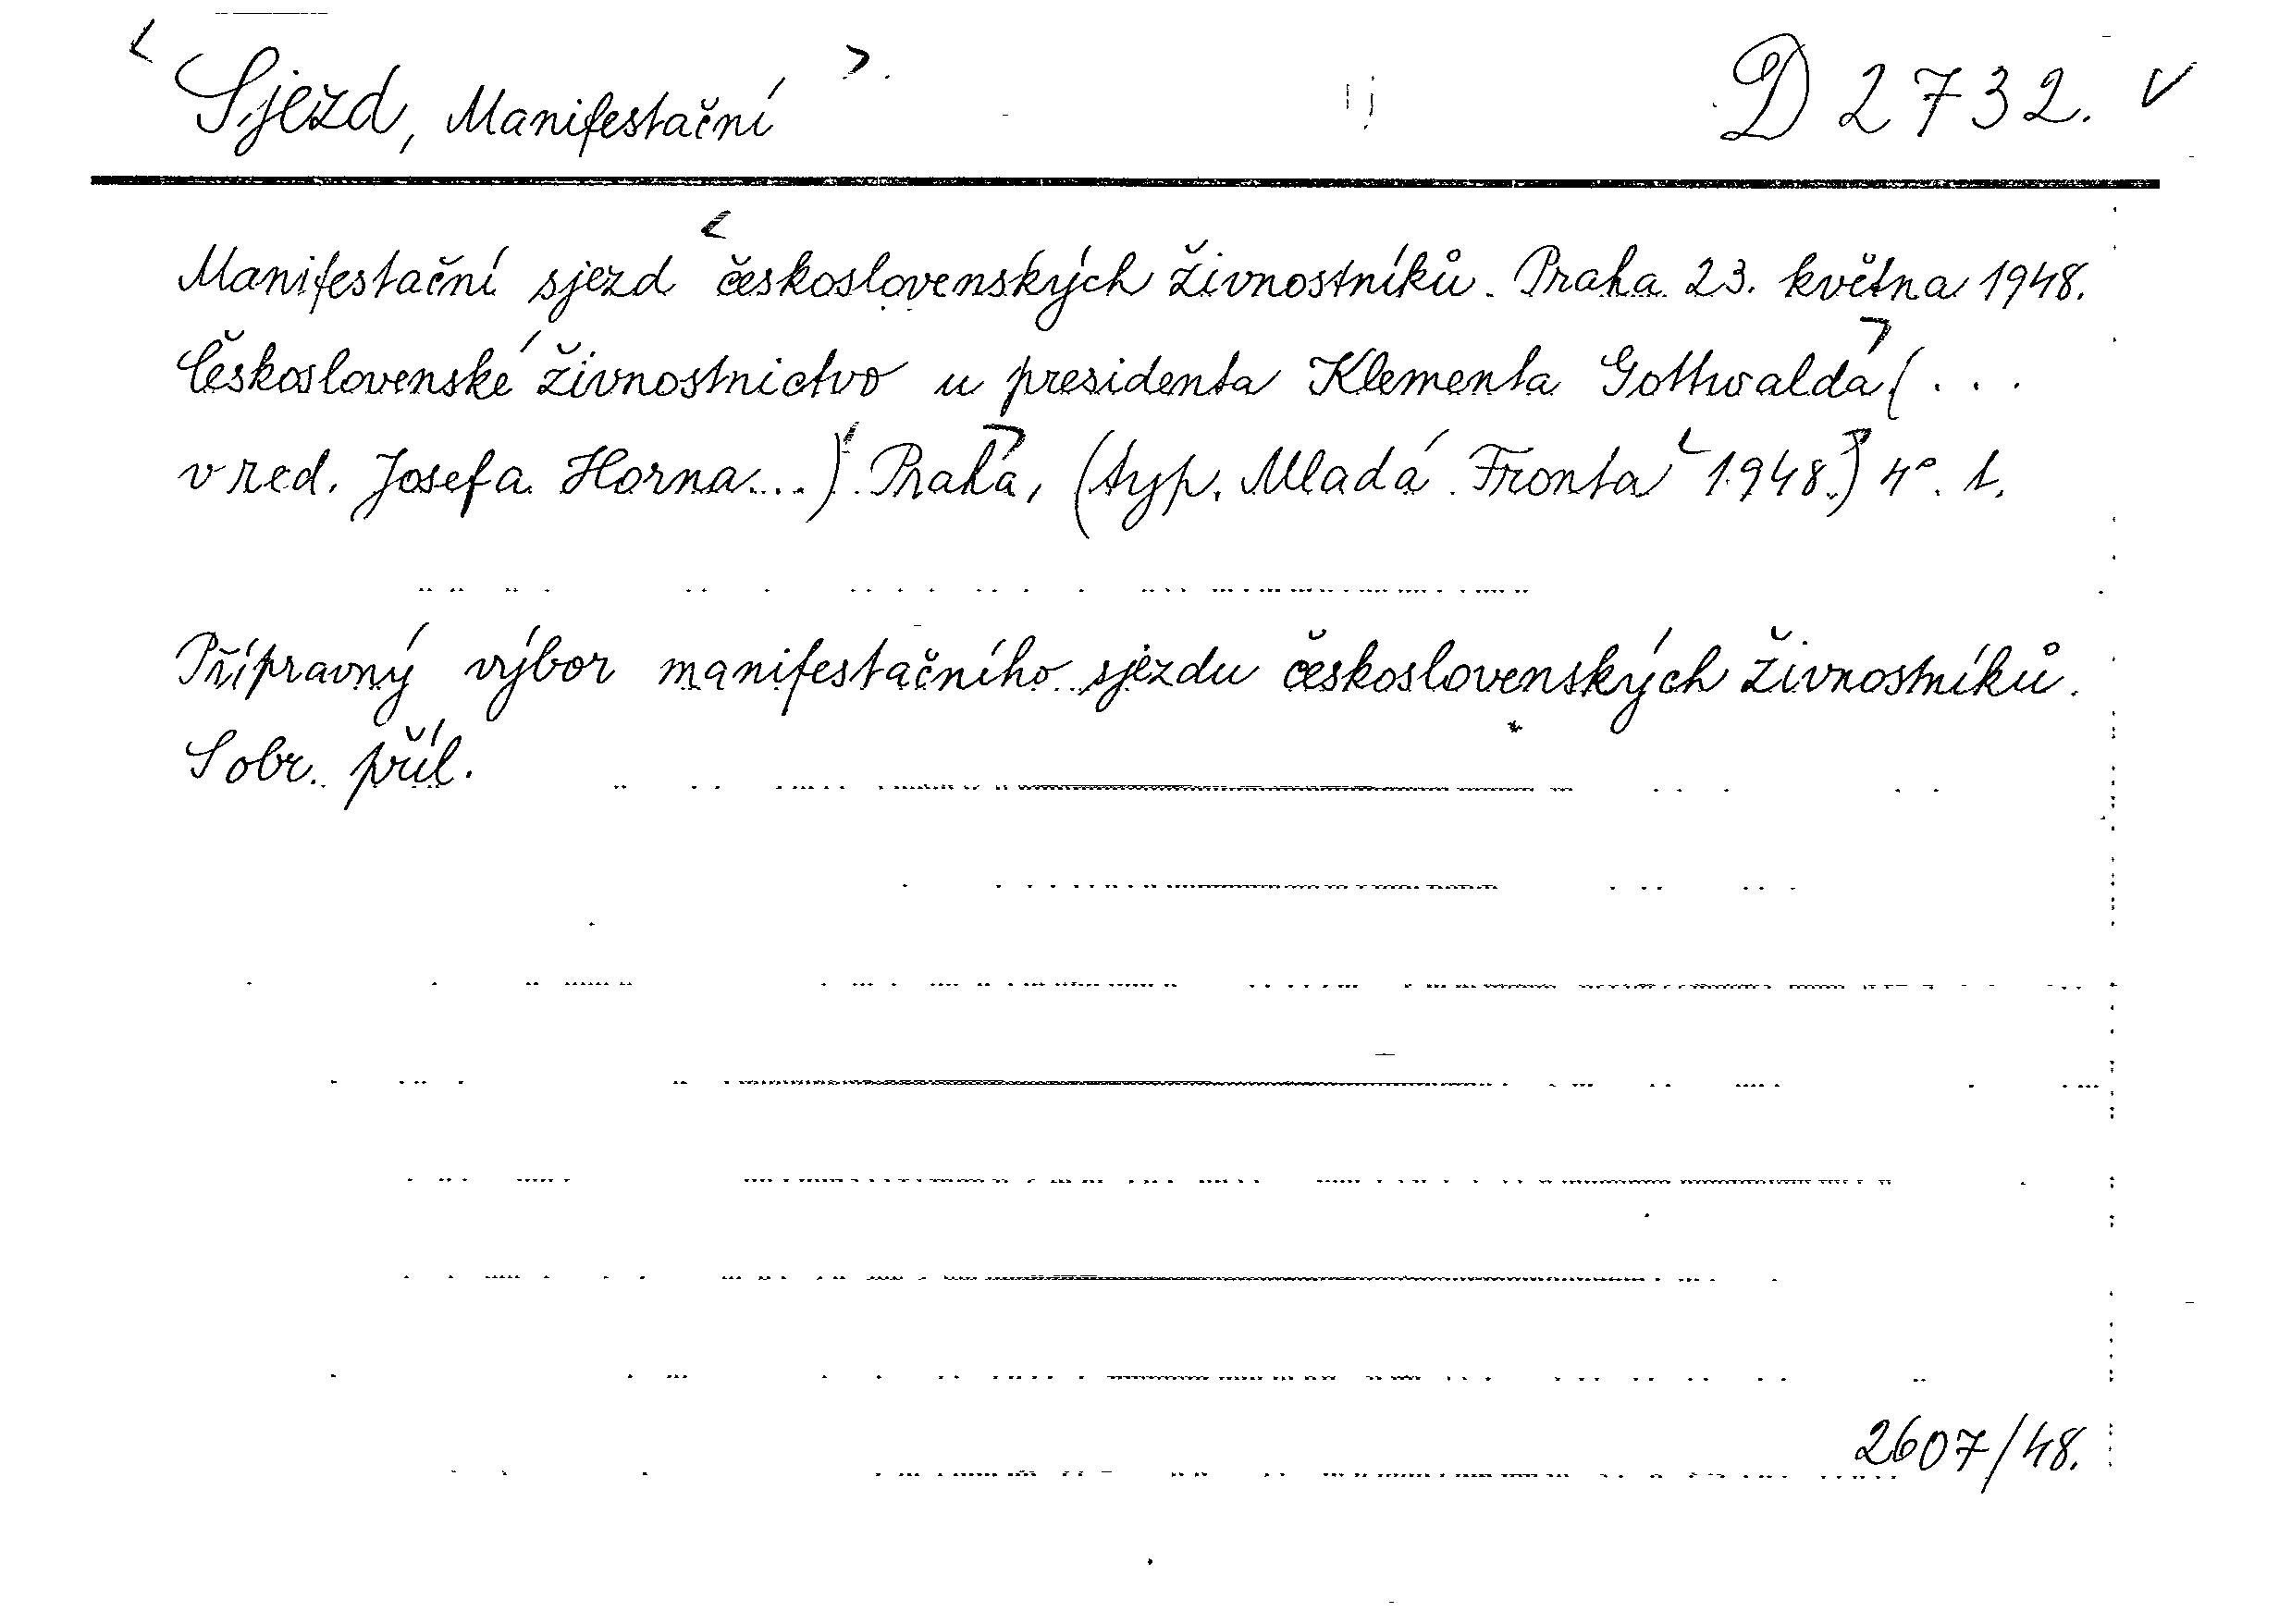 < Sjezd, Manifestační > D 2732. v
Manifestační sjezd < československých živnostníků. Praha 23. května 1948.
Československé živnostnictvo u presidenta Klementa Gottwalda (...
v red. Josefa Horna...). Praha, (typ. Mladá Fronta 1948.) 4°. 1.
Přípravný výbor manifestačního sjezdu československých živnostníků.
S obr. příl.
2607/48.